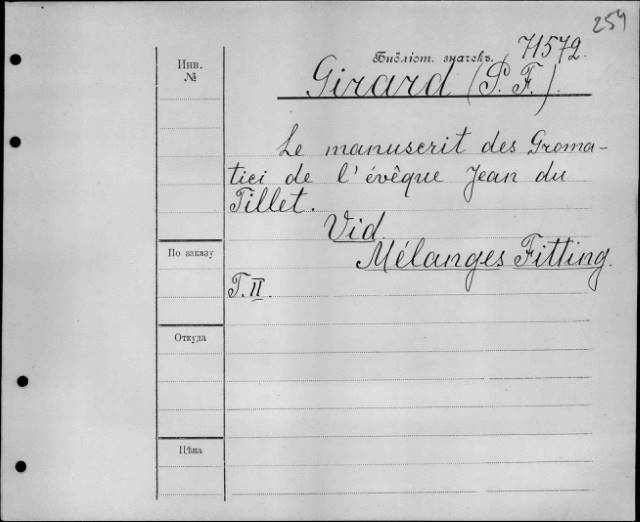 254
Инв.
№
Библіот. значекъ. 71572.
Girard (P. F.).
Le manuscrit des Groma-
tici de l'évêque Jean du
Tillet.
Vid.
Mélanges Fitting.
По заказу
T. II.
Откуда
Цѣна